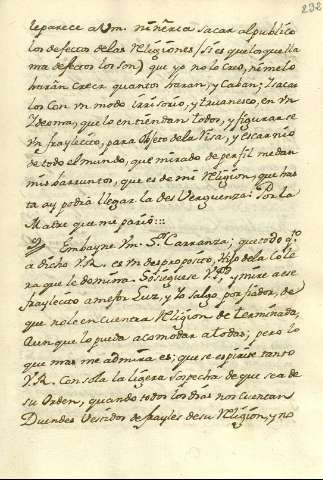 232
le parece a Vm. niñeria sacar al publico
los defectos de las Religiones (si es que los que lla
ma defectos lo son) que yo no lo creo, ni me lo
haràn creer quantos haran, y Caban; y sacar
los con Vn modo irrisorio, y truanesco, en Vn
Ydeoma, que lo entiendan todos, y figurarse
Vn fraylecito, para Objeto de la Risa, y escarnio
de todo el mundo, que mirado de perfil me dan
mis barruntos, que es de mi Religion, que has
ta ay podia llegar la desVerguenza! Por la
Madre que me pariò:::
Embayne Vm. Sr. Carranza; que todo qto.
a dicho V.R. es Vn desproposito, Hijo de la Cole
ra que le domina. Sosieguese V.R. y mire a ese
fraylecito a mejor Luz, y Yo salgo por fiador, de
que no le encuentra Religion determinada,
Aunque lo pueda acomodar a todas; pero lo
que mas me admira es; que se espirite tanto
V.R. Con sola la ligera sospecha de que sea de
su Orden, quando todos los dias nos cuentan
Duendes Vestidos de frayles de su Religion, y no